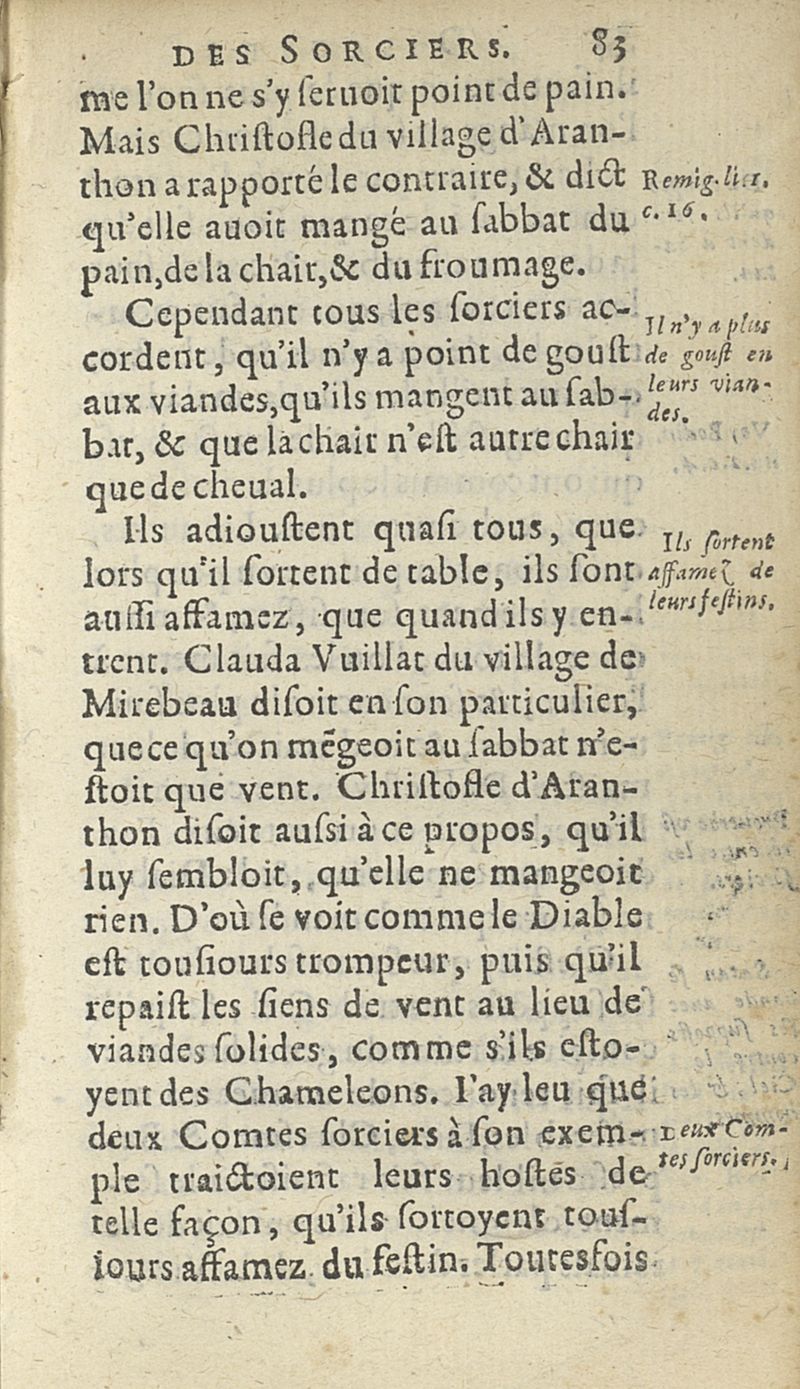 DES SORCIERS. 83
me l'on ne s'y ſeruoit point de pain.
Mais Chriſtofle du village d'Aran-
thon a rapporté le contraire, & dict
qu'elle auoit mangé au ſabbat du
pain, de la chair, & du froumage.
Remig. li. 1.
c. 16.
Cependant tous les ſorciers ac-
cordent, qu'il n'y a point de gouſt
aux viandes, qu'ils mangent au ſab-
bat, & que la chair n'eſt autre chair
que de cheual.
Il n'y a plus
de gouſt en
leurs vian-
des.
Ils adiouſtent quaſi tous, que
lors qu'il ſortent de table, ils ſont
auſſi affamez, que quand ils y en-
trent. Clauda Vuillat du village de
Mirebeau diſoit en ſon particulier,
que ce qu'on mẽgeoit au ſabbat n'e-
ſtoit que vent. Chriſtofle d'Aran-
thon diſoit auſsi à ce propos, qu'il
luy ſembloit, qu'elle ne mangeoit
rien. D'où ſe voit comme le Diable
eſt touſiours trompeur, puis qu'il
repaiſt les ſiens de vent au lieu de
viandes ſolides, comme s'ils eſto-
yent des Chameleons. I'ay leu que
deux Comtes ſorciers à ſon exem-
ple traictoient leurs hoſtes de
telle façon, qu'ils ſortoyent touſ-
iours affamez du feſtin. Toutesfois
Ils ſortent
affamez de
leurs feſtins.
Deux Com-
tes ſorciers.